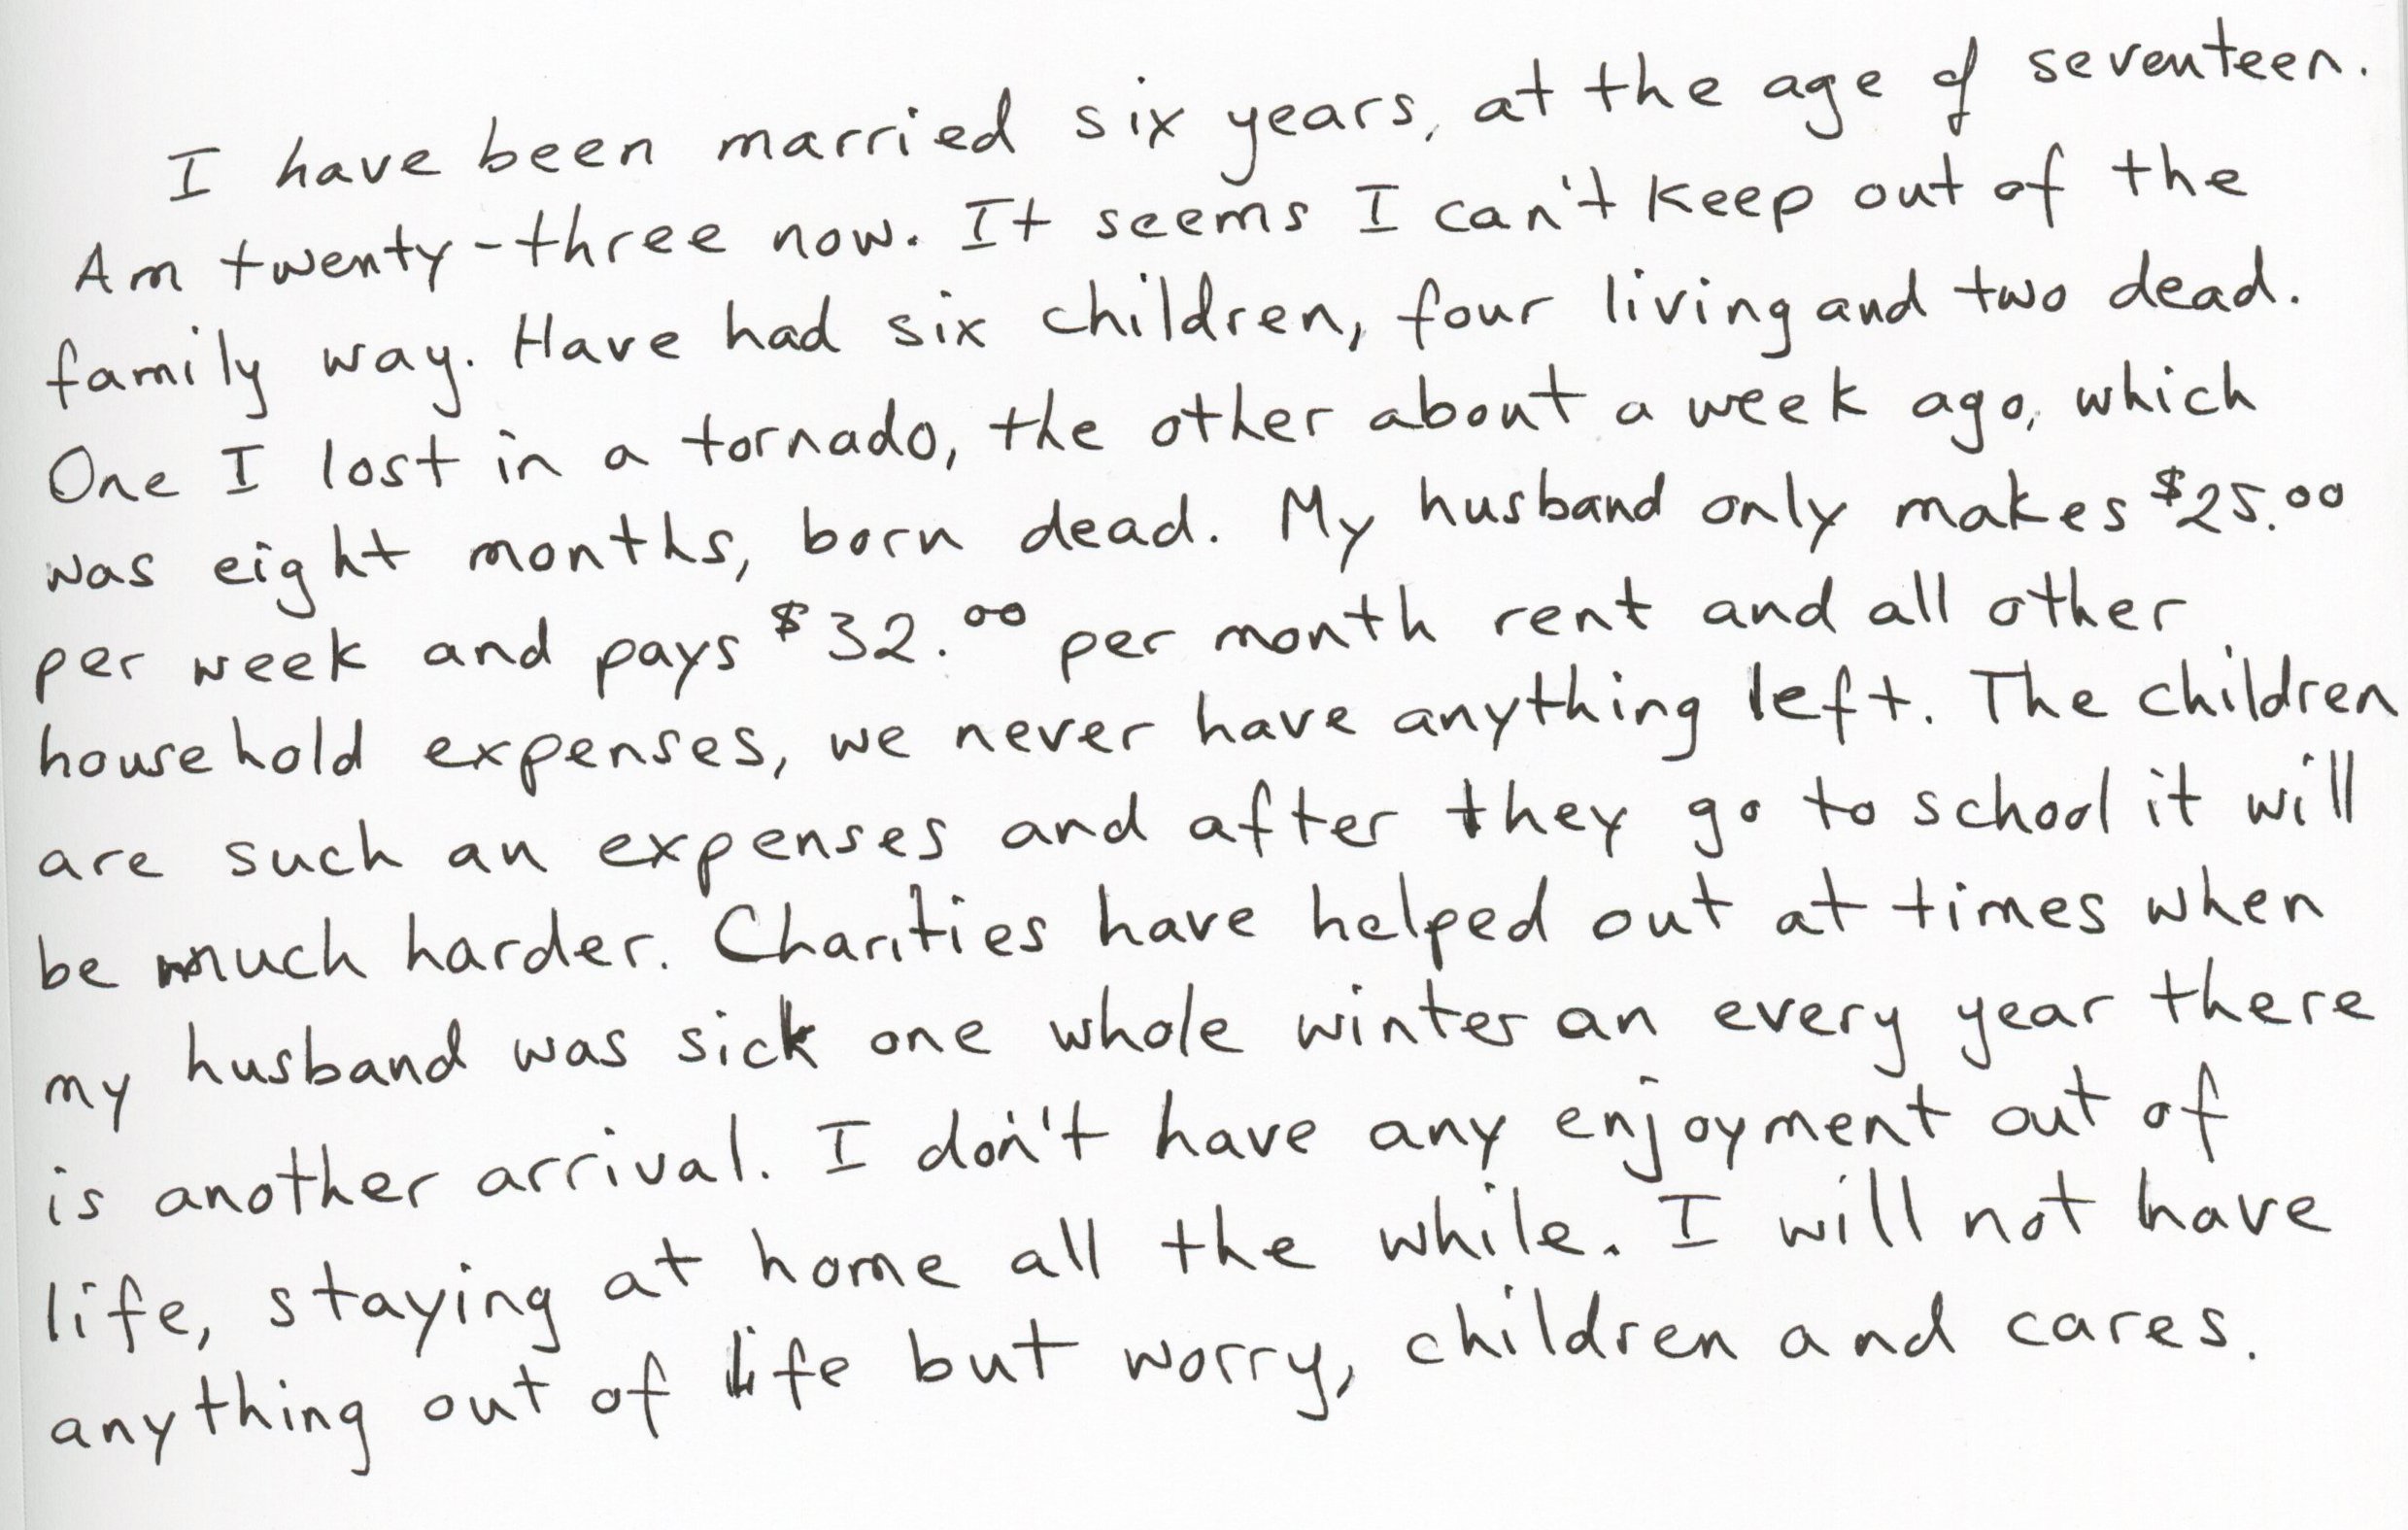 I have been married six years, at the age of seventeen.
Am twenty-three now. It seems I can't keep out of the
family way. Have had six children, four living and two dead.
One I lost in a tornado, the other about a week ago, which
was eight months, born dead. My husband only makes $25.00
per week and pays $32.00 per month rent and all other
household expenses, we never have anything left. The children
are such an expenses and after they go to school it will
be much harder. Charities have helped out at times when
my husband was sick one whole winter an every year there
is another arrival. I don't have any enjoyment out of
life, staying at home all the while. I will not have
anything out of life but worry, children and cares.